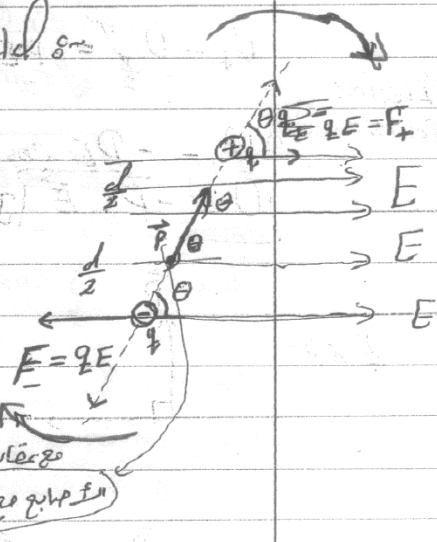 ld :-
θ
qE = F₊
+
q
d/2
E
θ
P⃗
θ
E
d/2
θ
-
q
E
F₋ = qE